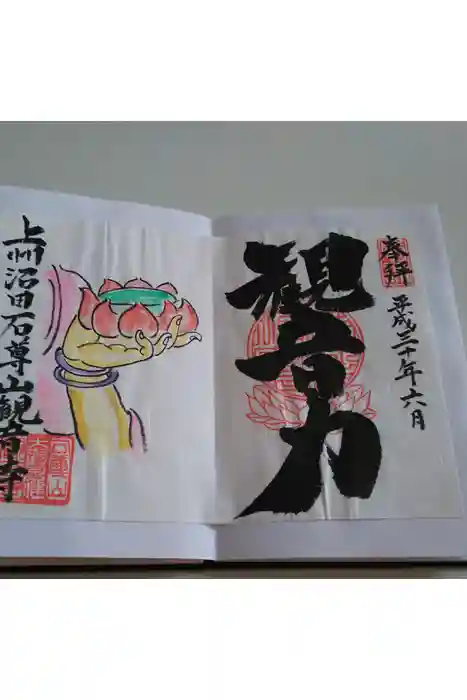 奉拝
平成三十年六月
観音力
上州沼田石尊山観音寺